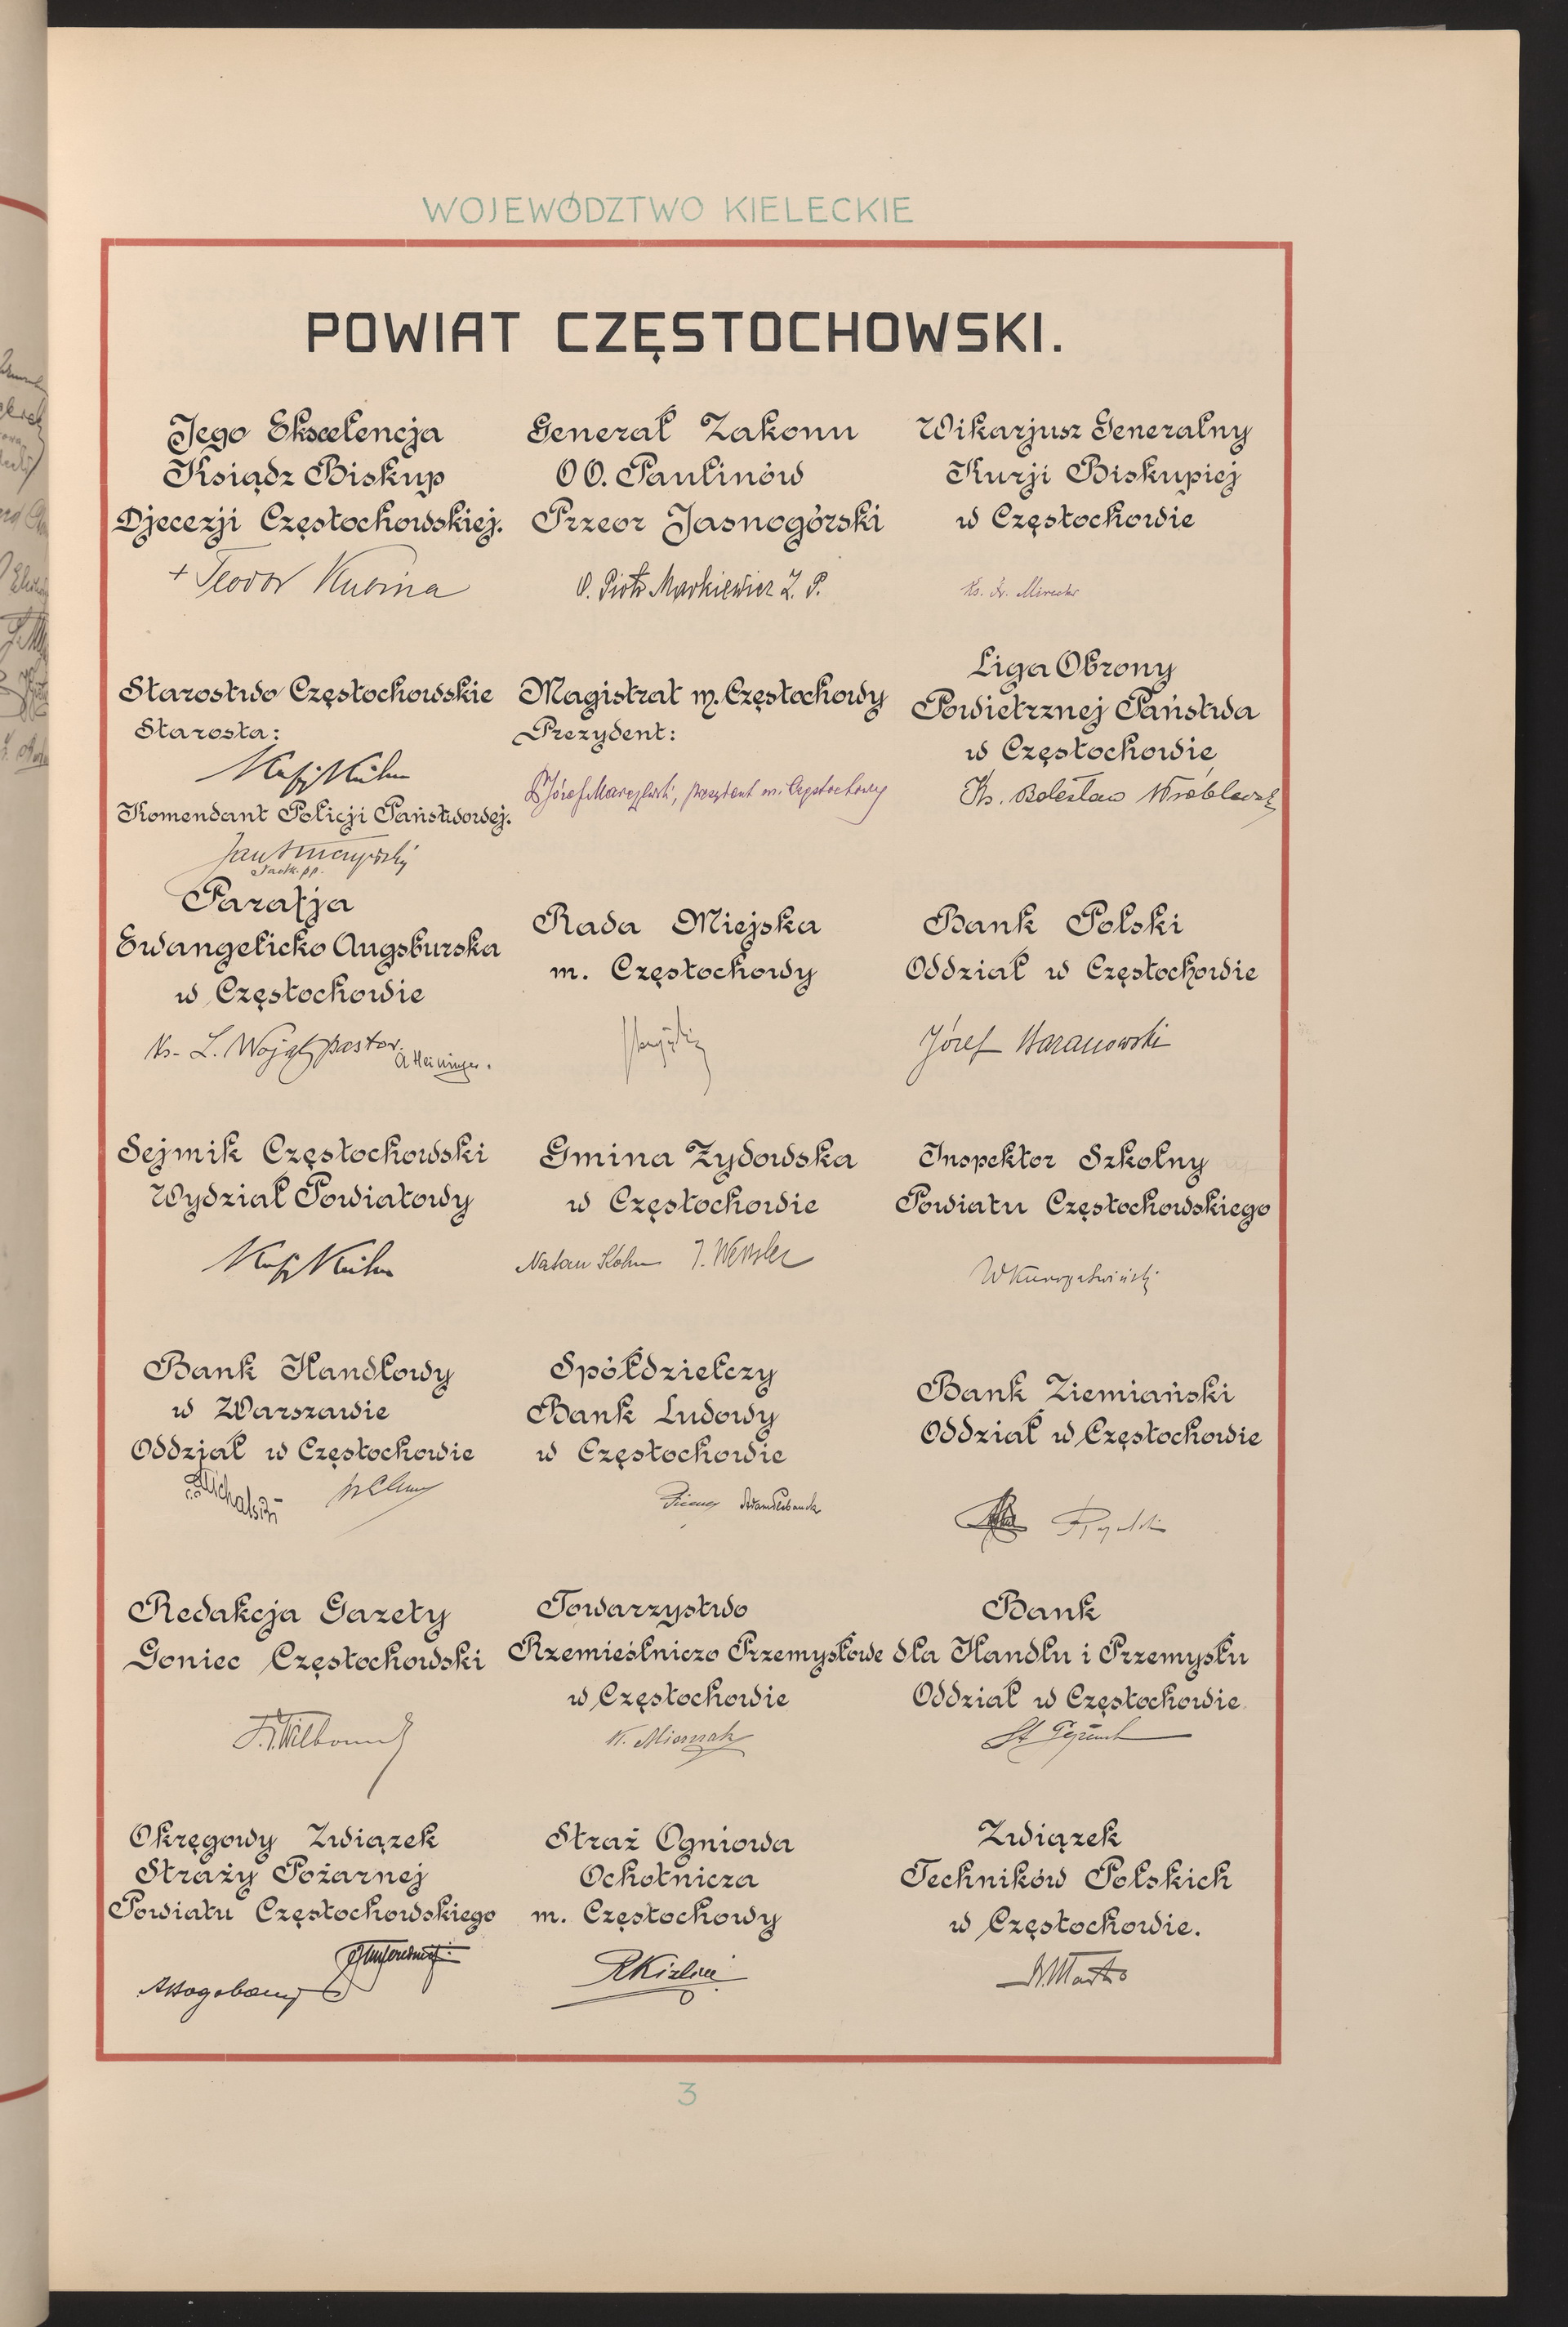 WOJEWÓDZTWO KIELECKIE
POWIAT CZĘSTOCHOWSKI.
Jego Ekscelencja
Ksiądz Biskup
Djecezji Częstochowskiej.
+ Teodor Kubina
Generał Zakonu
OO. Paulinów
Przeor Jasnogórski
O. Piotr Markiewicz Z. P.
Wikarjusz Generalny
Kurji Biskupiej
w Częstochowie
Ks. Fr. Mirecki
Starostwo Częstochowskie
Starosta:
Kühn
Komendant Policji Państwowej.
Jan
Nadk. pp.
Magistrat m. Częstochowy
Prezydent:
Józef Marczewski, prezydent m. Częstochowy
Liga Obrony
Powietrznej Państwa
w Częstochowie
Ks. Bolesław Wróblewski
Parafja
Ewangelicko Augsburska
w Częstochowie
Ks. L. Wojak pastor.
Rada Miejska
m. Częstochowy
Bank Polski
Oddział w Częstochowie
Józef Baranowski
Sejmik Częstochowski
Wydział Powiatowy
Kühn
Gmina Żydowska
w Częstochowie
Natan Kohn J. Weksler
Inspektor Szkolny
Powiatu Częstochowskiego
Bank Handlowy
w Warszawie
Oddział w Częstochowie
Michalski
Spółdzielczy
Bank Ludowy
w Częstochowie
Bank Ziemiański
Oddział w Częstochowie
Redakcja Gazety
Goniec Częstochowski
Towarzystwo
Rzemieślniczo Przemysłowe
w Częstochowie
Bank
dla Handlu i Przemysłu
Oddział w Częstochowie
Okręgowy Związek
Straży Pożarnej
Powiatu Częstochowskiego
Straż Ogniowa
Ochotnicza
m. Częstochowy
Związek
Techników Polskich
w Częstochowie.
3